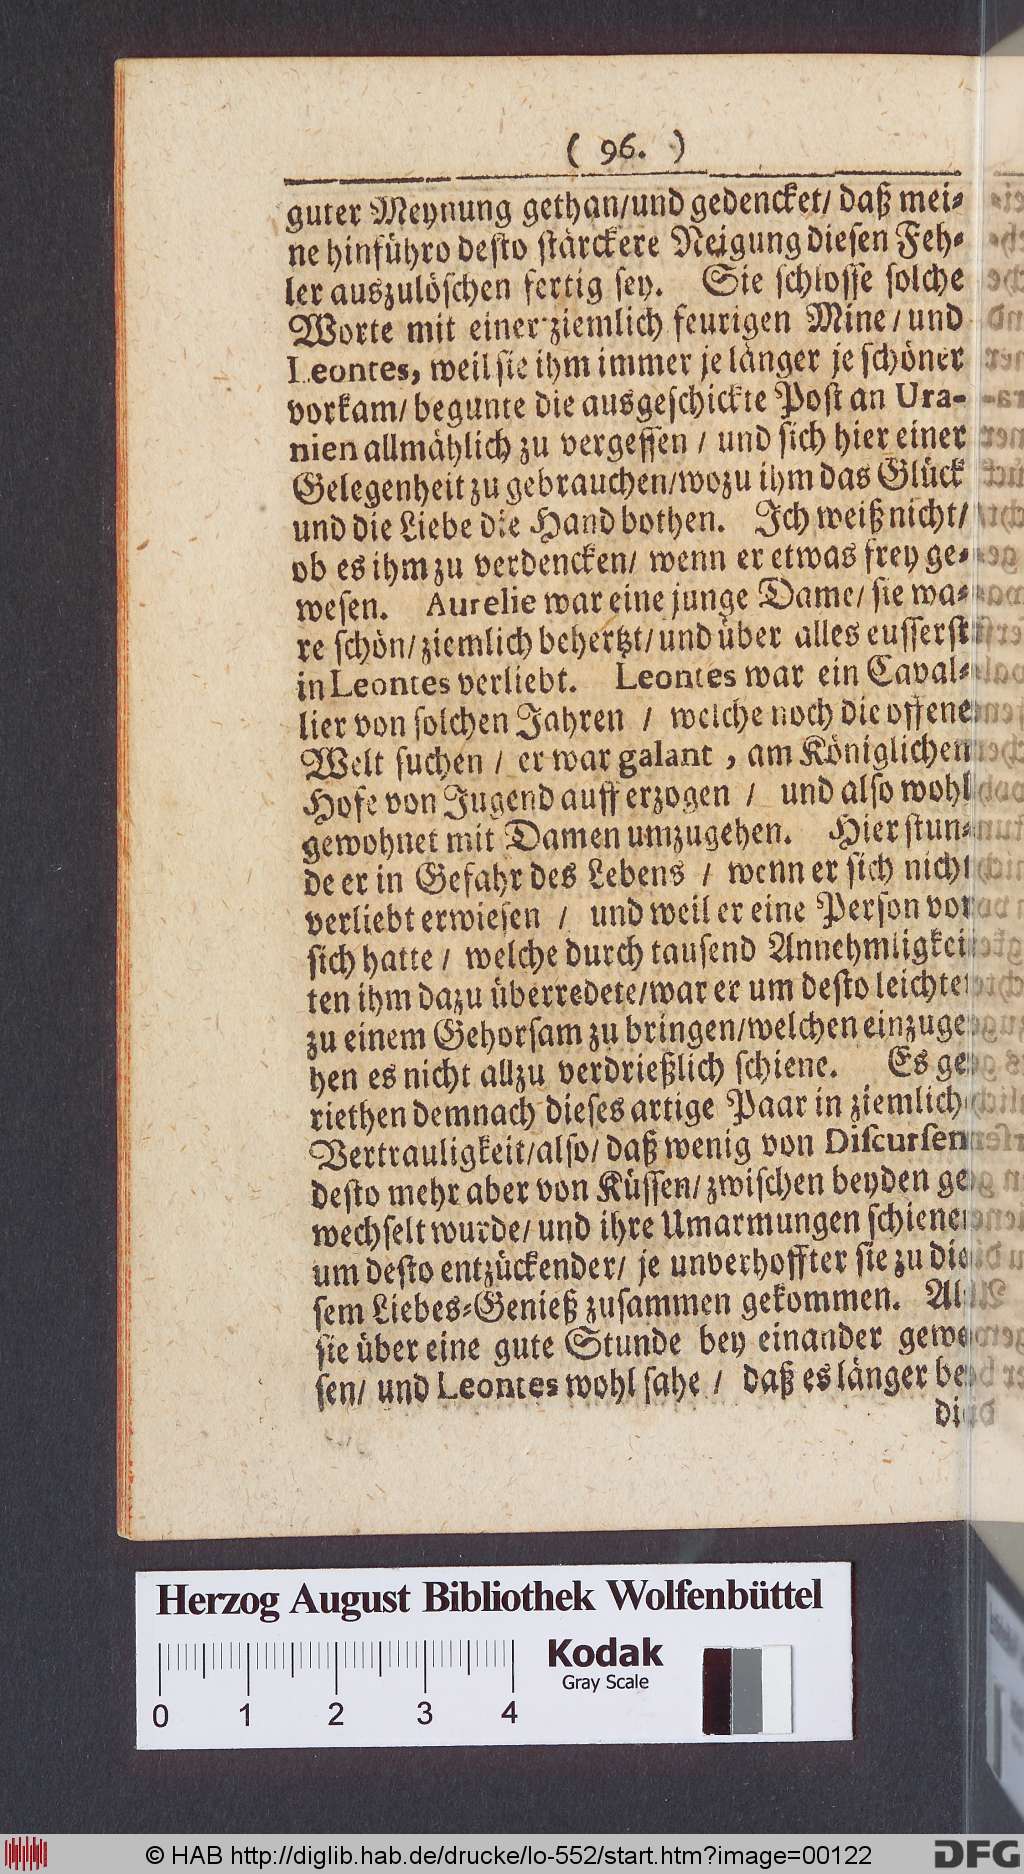 ( 96. )
guter Meynung gethan/und gedencket/ daß mei-
ne hinführo desto stärckere Neigung diesen Feh-
ler auszulöschen fertig sey. Sie schlosse solche
Worte mit einer ziemlich feurigen Mine/ und
Leontes, weil sie ihm immer je länger je schöner
vorkam/ begunte die ausgeschickte Post an Ura-
nien allmählich zu vergessen / und sich hier einer
Gelegenheit zu gebrauchen/wozu ihm das Glück
und die Liebe die Hand bothen. Ich weiß nicht/
ob es ihm zu verdencken/ wenn er etwas frey ge-
wesen. Aurelie war eine junge Dame/ sie wa-
re schön/ ziemlich behertzt/ und über alles eusserst
in Leontes verliebt. Leontes war ein Caval-
lier von solchen Jahren / welche noch die offene
Welt suchen / er war galant , am Königlichen
Hofe von Jugend auff erzogen / und also wohl
gewohnet mit Damen umzugehen. Hier stun-
de er in Gefahr des Lebens / wenn er sich nicht
verliebt erwiesen / und weil er eine Person vor
sich hatte / welche durch tausend Annehmligkei
ten ihm dazu überredete/war er um desto leichter
zu einem Gehorsam zu bringen/welchen einzuge
hen es nicht allzu verdrießlich schiene. Es ge
riethen demnach dieses artige Paar in ziemliche
Vertrauligkeit/also/ daß wenig von Discursen
desto mehr aber von Küssen/ zwischen beyden ge
wechselt wurde/ und ihre Umarmungen schienen
um desto entzückender/ je unverhoffter sie zu die
sem Liebes-Genieß zusammen gekommen. Al
sie über eine gute Stunde bey einander gewe
sen/ und Leontes wohl sahe / daß es länger be
di
Herzog August Bibliothek Wolfenbüttel
Kodak
Gray Scale
0 1 2 3 4
© HAB http://diglib.hab.de/drucke/lo-552/start.htm?image=00122
DFG